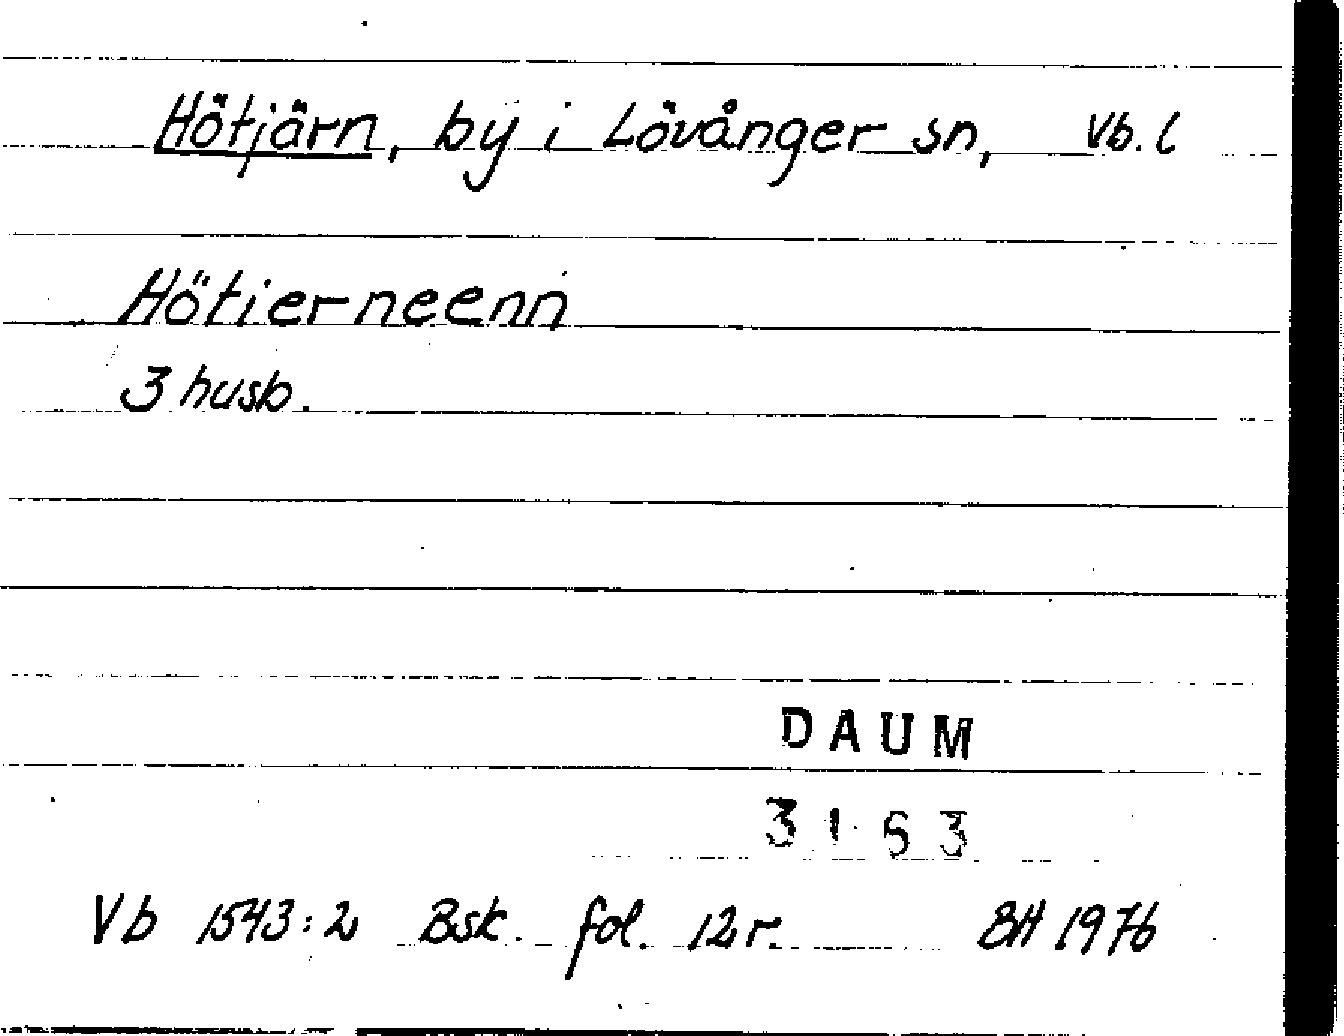 Hötjärn, by i Lövånger sn, Vb. l
Hötierneenn
3 husb.
DAUM
3153
Vb 1543:2 Bsk. fol. 12 r. BH 1976